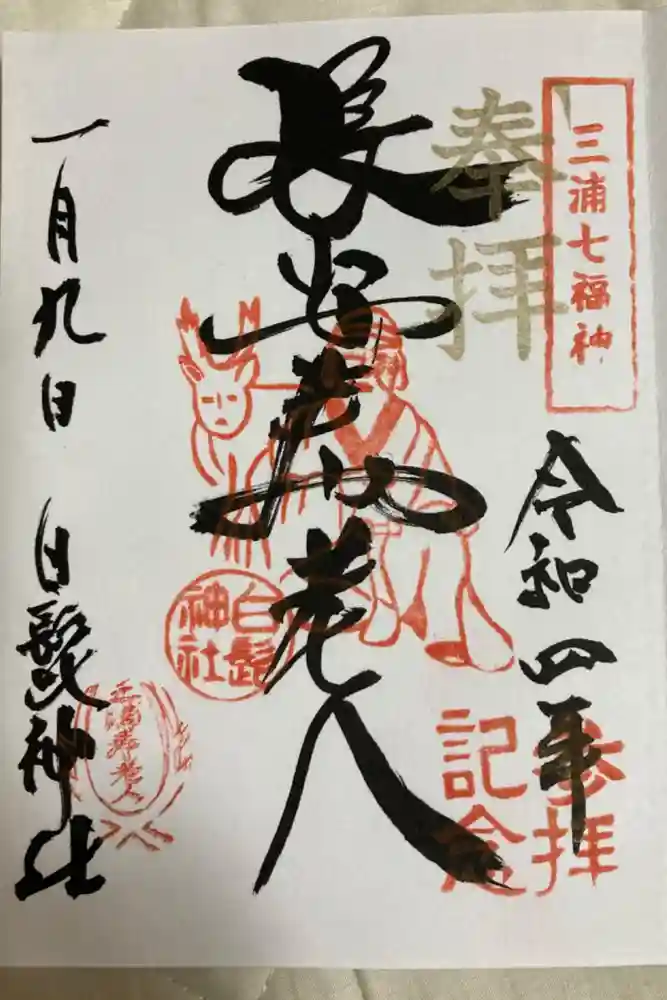 三浦七福神
奉拝
令和四年
参拝
記念
長安寿老人
白髭
神社
三浦寿老人
一月九日 白髭神社